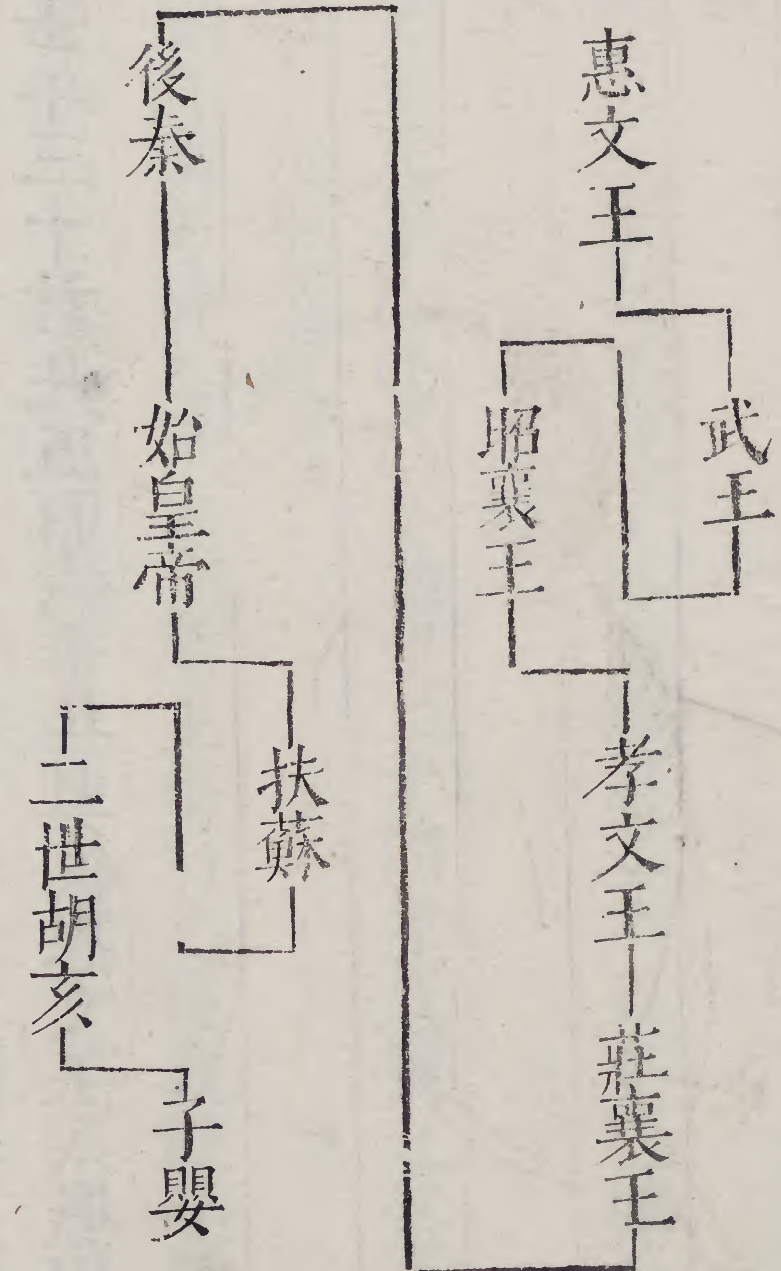 惠文王
武王
昭襄王
孝文王
莊襄王
後秦
始皇帝
扶蘇
二世胡亥
子嬰